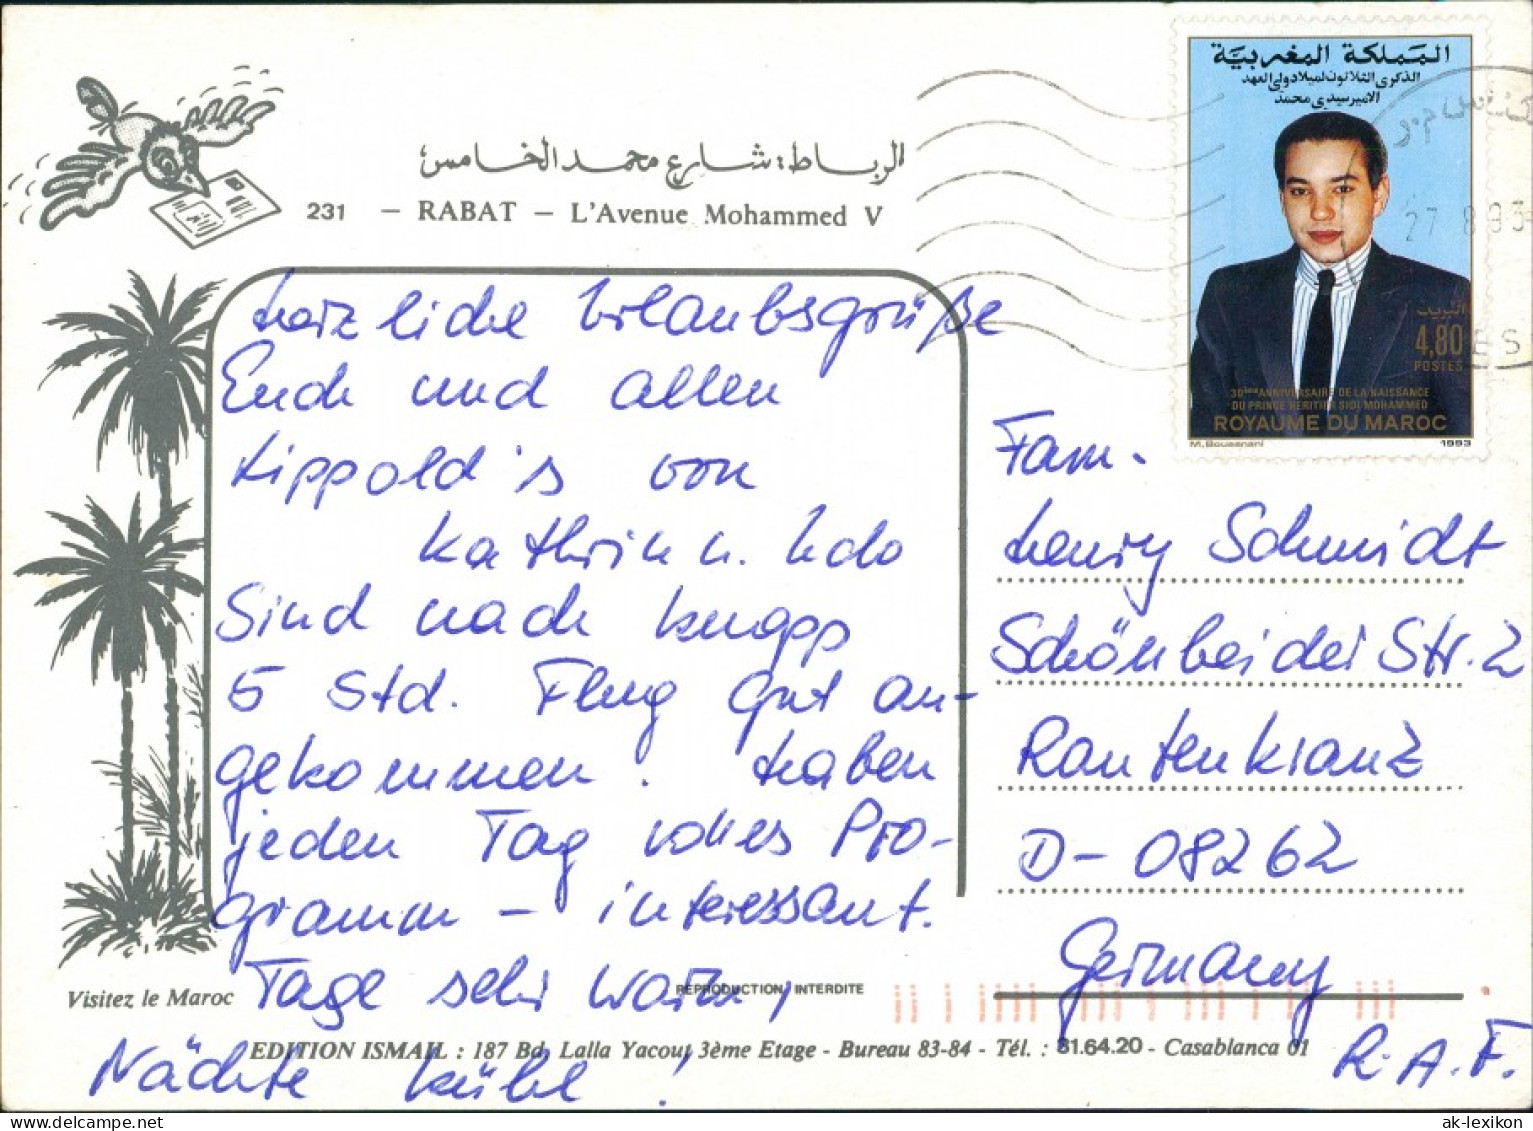 المملكة المغربية
الذكرى الثلاثون لميلاد ولي العهد
الامير سيدي محمد
البريد
4,80
POSTES
30ème ANNIVERSAIRE DE LA NAISSANCE
DU PRINCE HERITIER SIDI MOHAMMED
ROYAUME DU MAROC
M. Bousnani 1993
27 8 93
الرباط: شارع محمد الخامس
231 - RABAT - L'Avenue Mohammed V
Herzliche Urlaubsgrüße
Euch und allen
Hippold's von
Kathrin u. Udo
Sind nach knapp
5 Std. Flug gut an-
gekommen. Haben
jeden Tag volles Pro-
gramm - interessant.
Tage sehr warm,
Nächte kühl!
Fam.
Henry Schmidt
Schönheider Str. 2
Rautenkranz
D-08262
Germany
R.A.F.
Visitez le Maroc
REPRODUCTION INTERDITE
EDITION ISMAIL : 187 Bd. Lalla Yacout 3ème Etage - Bureau 83-84 - Tél. : 31.64.20 - Casablanca 01
ak-lexikon